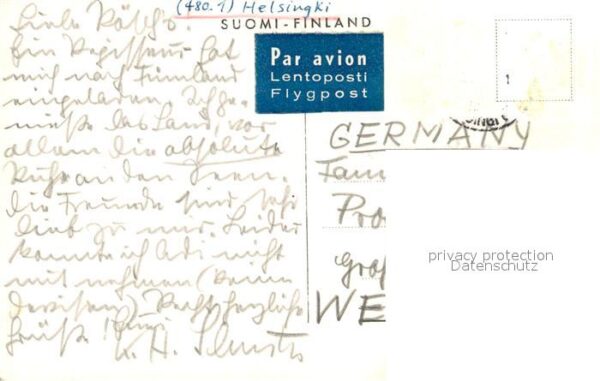 (480.1) Helsingki
SUOMI-FINLAND
Par avion
Lentoposti
Flygpost
1
Liebe
Ein Regisseur hat
mich nach Finnland
eingeladen. Ich ge-
nieße das Land, vor
allem die absolute
Ruhe an den Seen.
Die Freunde sind sehr
lieb zu mir. Leider
konnte ich Adi nicht
mit nehmen (keine
Devisen). Recht herzliche
Grüße
K. H.
GERMANY
Fam
Pro
Graf
WE
privacy protection
Datenschutz